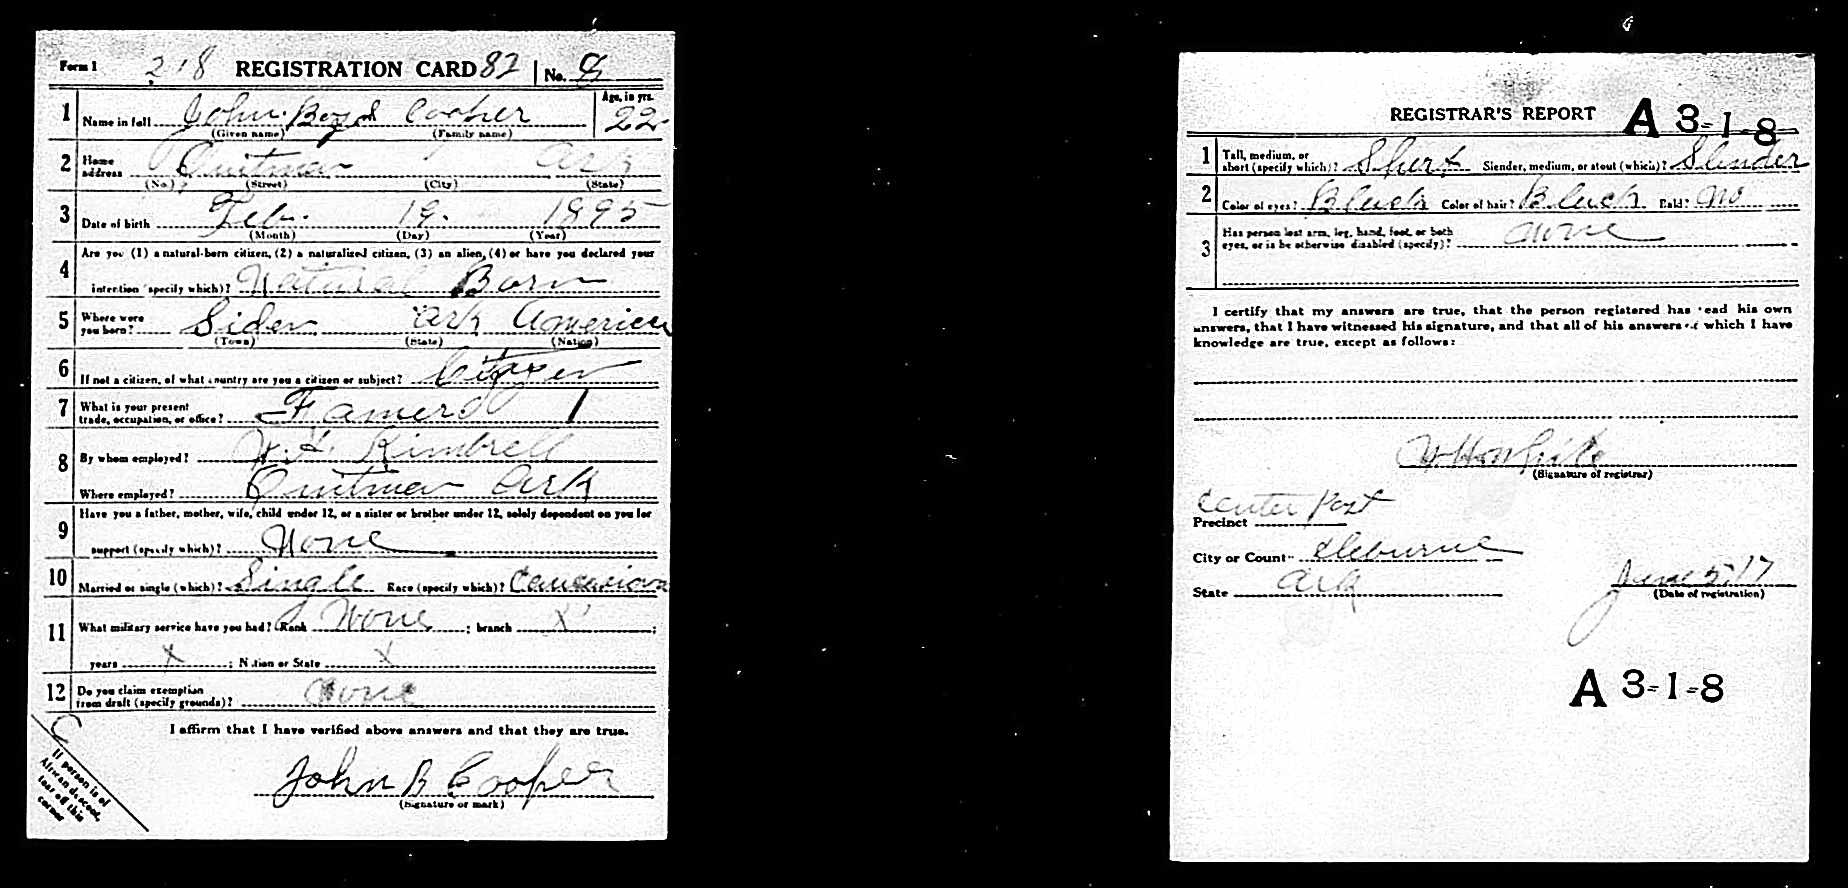 Form 1 218 REGISTRATION CARD 82 No. 8
1 Name in full John Boyd Cooper Age, in yrs. 22
(Given name) (Family name)
2 Home address Quitman Ark
(No.) (Street) (City) (State)
3 Date of birth Feb. 19. 1895
(Month) (Day) (Year)
4 Are you (1) a natural-born citizen, (2) a naturalized citizen, (3) an alien, (4) or have you declared your
intention (specify which)? Natural Born
5 Where were you born? Siden Ark America
(Town) (State) (Nation)
6 If not a citizen, of what country are you a citizen or subject? Citizen
7 What is your present trade, occupation, or office? Famers 1
8 By whom employed? Kimbrell
Where employed? Quitman Ark
9 Have you a father, mother, wife, child under 12, or a sister or brother under 12, solely dependent on you for
support (specify which)? None
10 Married or single (which)? Single Race (specify which)? Caucasian
11 What military service have you had? Rank None ; branch X ;
years X ; Nation or State X
12 Do you claim exemption from draft (specify grounds)? None
I affirm that I have verified above answers and that they are true.
John B Cooper
(Signature or mark)
C
If person is of
African descent,
tear off this
corner
REGISTRAR'S REPORT A 3-1-8
1 Tall, medium, or short (specify which)? Short Slender, medium, or stout (which)? Slender
2 Color of eyes? Black Color of hair? Black Bald? No
3 Has person lost arm, leg, hand, foot, or both eyes, or is he otherwise disabled (specify)? None
I certify that my answers are true, that the person registered has read his own
answers, that I have witnessed his signature, and that all of his answers of which I have
knowledge are true, except as follows:
(Signature of registrar)
Precinct Center Post
City or County Cleburne
State Ark
June 5 17
(Date of registration)
A 3-1-8